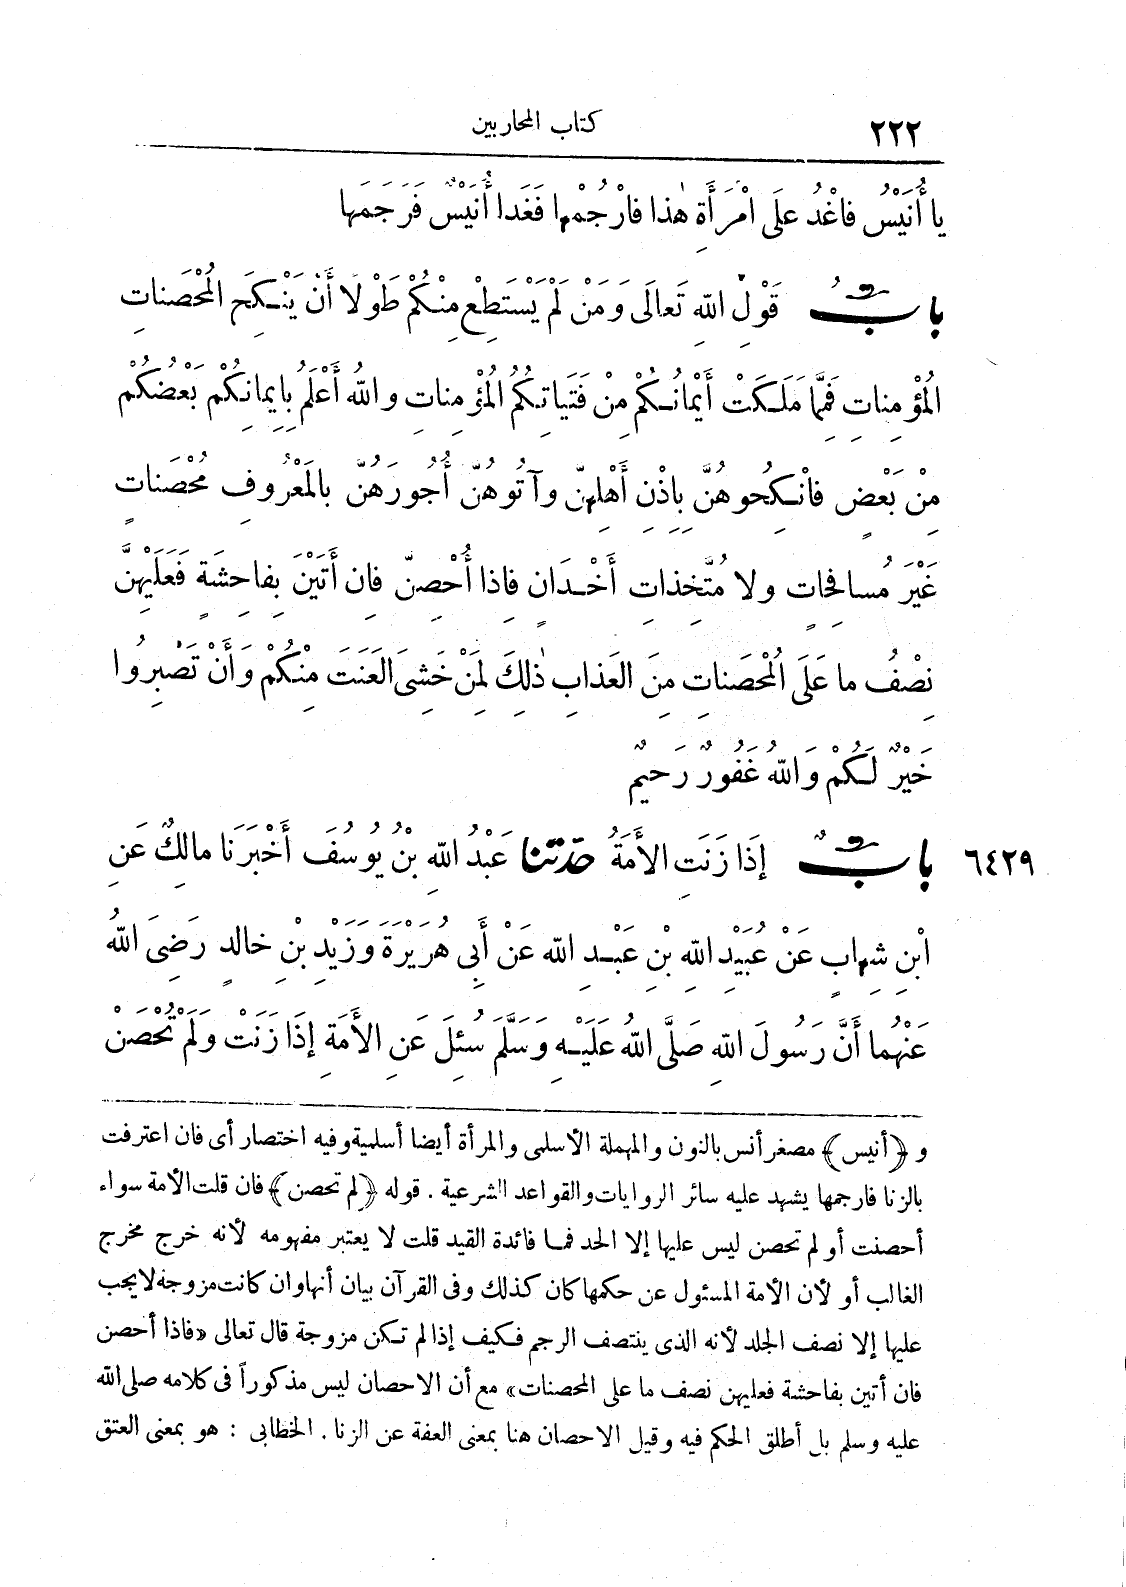 ٢٢٢ كتاب المحاربين
يا أُنَيْسُ فاغْدُ عَلَى امْرَأَةِ هٰذا فارْجُمْها فَغَدا أُنَيْسٌ فَرَجَمَها
بابُ قَوْلِ اللهِ تَعالَى وَمَنْ لَمْ يَسْتَطِعْ مِنْكُمْ طَوْلًا أَنْ يَنْكِحَ الْمُحْصَناتِ
الْمُؤْمِناتِ فَمِمَّا مَلَكَتْ أَيْمانُكُمْ مِنْ فَتَياتِكُمُ الْمُؤْمِناتِ واللهُ أَعْلَمُ بِإِيمانِكُمْ بَعْضُكُمْ
مِنْ بَعْضٍ فانْكِحُوهُنَّ بِإِذْنِ أَهْلِهِنَّ وآتُوهُنَّ أُجُورَهُنَّ بالمَعْرُوفِ مُحْصَناتٍ
غَيْرَ مُسافِحاتٍ ولا مُتَّخِذاتِ أَخْدانٍ فاذا أُحْصِنَّ فان أَتَيْنَ بِفاحِشَةٍ فَعَلَيْهِنَّ
نِصْفُ ما عَلَى الْمُحْصَناتِ مِنَ العَذابِ ذٰلِكَ لِمَنْ خَشِىَ العَنَتَ مِنْكُمْ وَأَنْ تَصْبِرُوا
خَيْرٌ لَكُمْ واللهُ غَفُورٌ رَحِيمٌ
٦٤٢٩ بابٌ إِذَا زَنَتِ الأَمَةُ حَدَّثَنا عَبْدُ اللهِ بْنُ يُوسُفَ أَخْبَرَنَا مالِكٌ عَنِ
ابْنِ شِهابٍ عَنْ عُبَيْدِ اللهِ بْنِ عَبْدِ اللهِ عَنْ أَبِى هُرَيْرَةَ وَزَيْدِ بْنِ خالِدٍ رَضِىَ اللهُ
عَنْهُما أَنَّ رَسُولَ اللهِ صَلَّى اللهُ عَلَيْهِ وَسَلَّمَ سُئِلَ عَنِ الأَمَةِ إِذَا زَنَتْ وَلَمْ تُحْصَنْ
و ﴿أنيس﴾ مصغر أنس بالنون والمهملة الأسلمى والمرأة أيضا أسلمية وفيه اختصار أى فان اعترفت
بالزنا فارجمها يشهد عليه سائر الروايات والقواعد الشرعية . قوله ﴿لم تحصن﴾ فان قلت الأمة سواء
أحصنت أو لم تحصن ليس عليها إلا الحد فما فائدة القيد قلت لا يعتبر مفهومه لأنه خرج مخرج
الغالب أو لأن الأمة المسئول عن حكمها كان كذلك وفى القرآن بيان أنها وان كانت مزوجة لا يجب
عليها إلا نصف الجلد لأنه الذى ينتصف الرجم فكيف إذا لم تكن مزوجة قال تعالى «فاذا أحصن
فان أتين بفاحشة فعليهن نصف ما على المحصنات» مع أن الاحصان ليس مذكوراً فى كلامه صلى الله
عليه وسلم بل أطلق الحكم فيه وقيل الاحصان هنا بمعنى العفة عن الزنا . الخطابى : هو بمعنى العتق